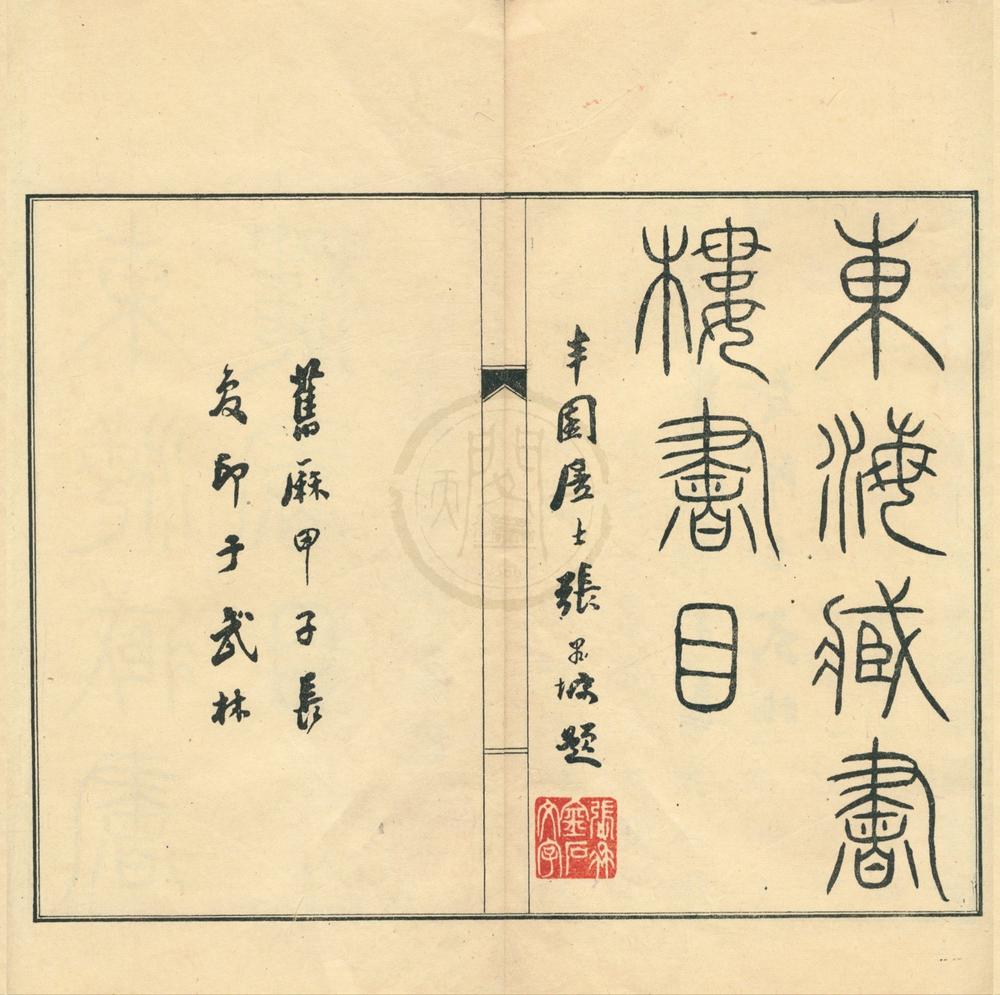 東海藏書
樓書目
半園居士張題
張金石文字
舊厤甲子長
夏印于武林